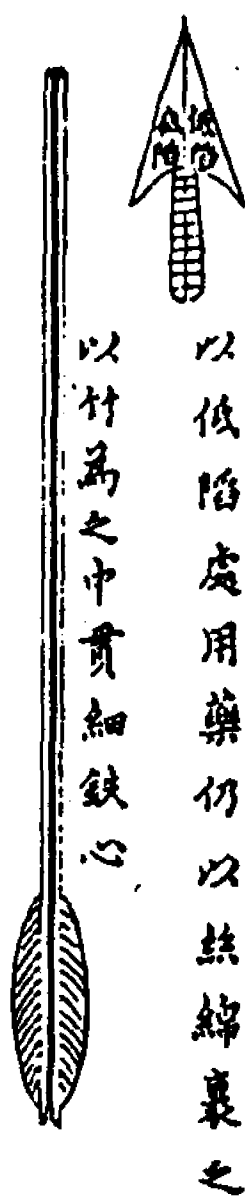 低陷
低陷
以低陷處用藥仍以絲綿裹之
以竹為之中貫細鉄心